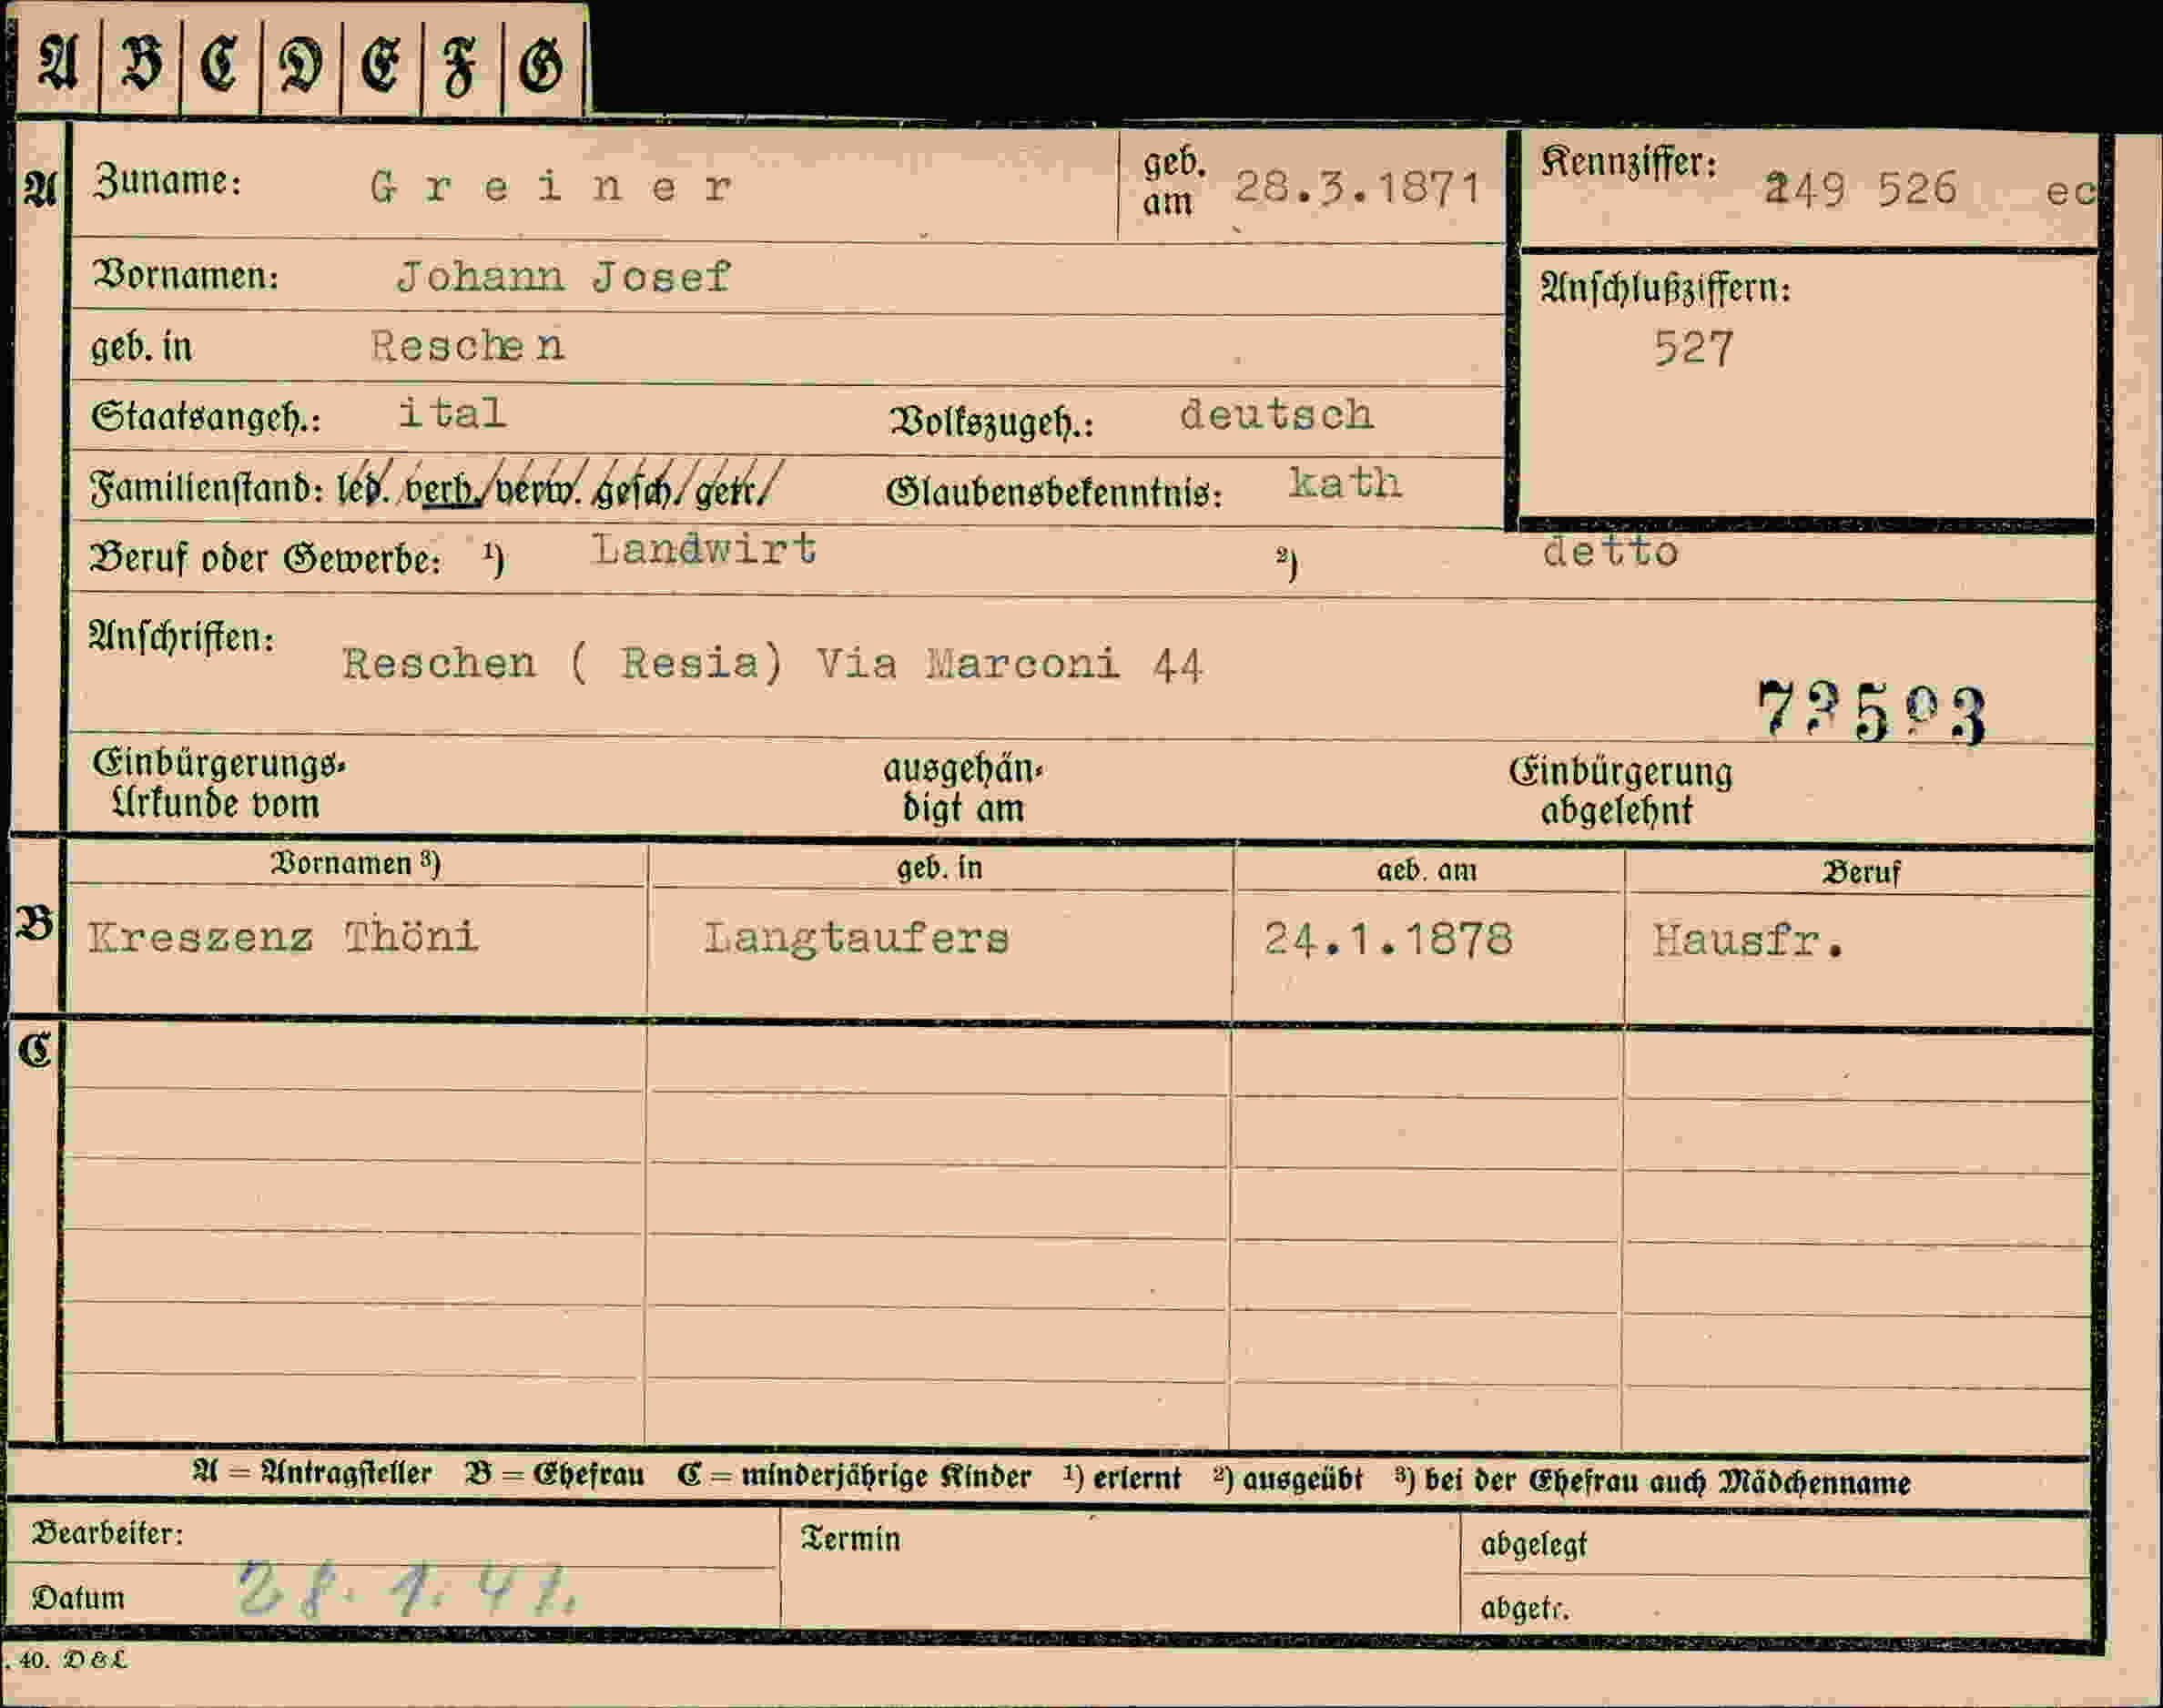 A B C D E F G
A Zuname: Greiner geb. am 28.3.1871 Kennziffer: 249 526 ec
Vornamen: Johann Josef Anschlußziffern:
geb. in Reschen 527
Staatsangeh.: ital Volkszugeh.: deutsch
Familienstand: led. verh. verw. gesch. getr. Glaubensbekenntnis: kath
Beruf oder Gewerbe: 1) Landwirt 2) detto
Anschriften: Reschen ( Resia) Via Marconi 44
Einbürgerungs-Urkunde vom ausgehändigt am Einbürgerung abgelehnt
Vornamen 3) geb. in geb. am Beruf
B Kreszenz Thöni Langtaufers 24.1.1878 Hausfr.
C
A = Antragsteller B = Ehefrau C = minderjährige Kinder 1) erlernt 2) ausgeübt 3) bei der Ehefrau auch Mädchenname
Bearbeiter: Termin abgelegt
Datum 28.1.41. abgetr.
. 40. D & L